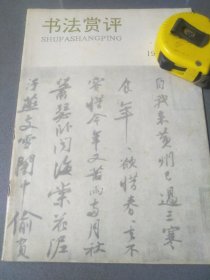 书法赏评
SHUFASHANGPING
19
自我來黄州已過三寒
食年〻欲惜春〻去不
容惜今年又苦雨兩月秋
蕭瑟卧聞海棠花泥
汙燕支雪闇中偷負